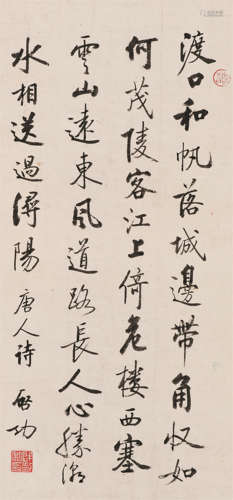 渡口和帆落城邊帶角收如
何茂陵客江上倚危樓西塞
雲山遠東風道路長人心勝潮
水相送過潯陽 唐人詩 啟功